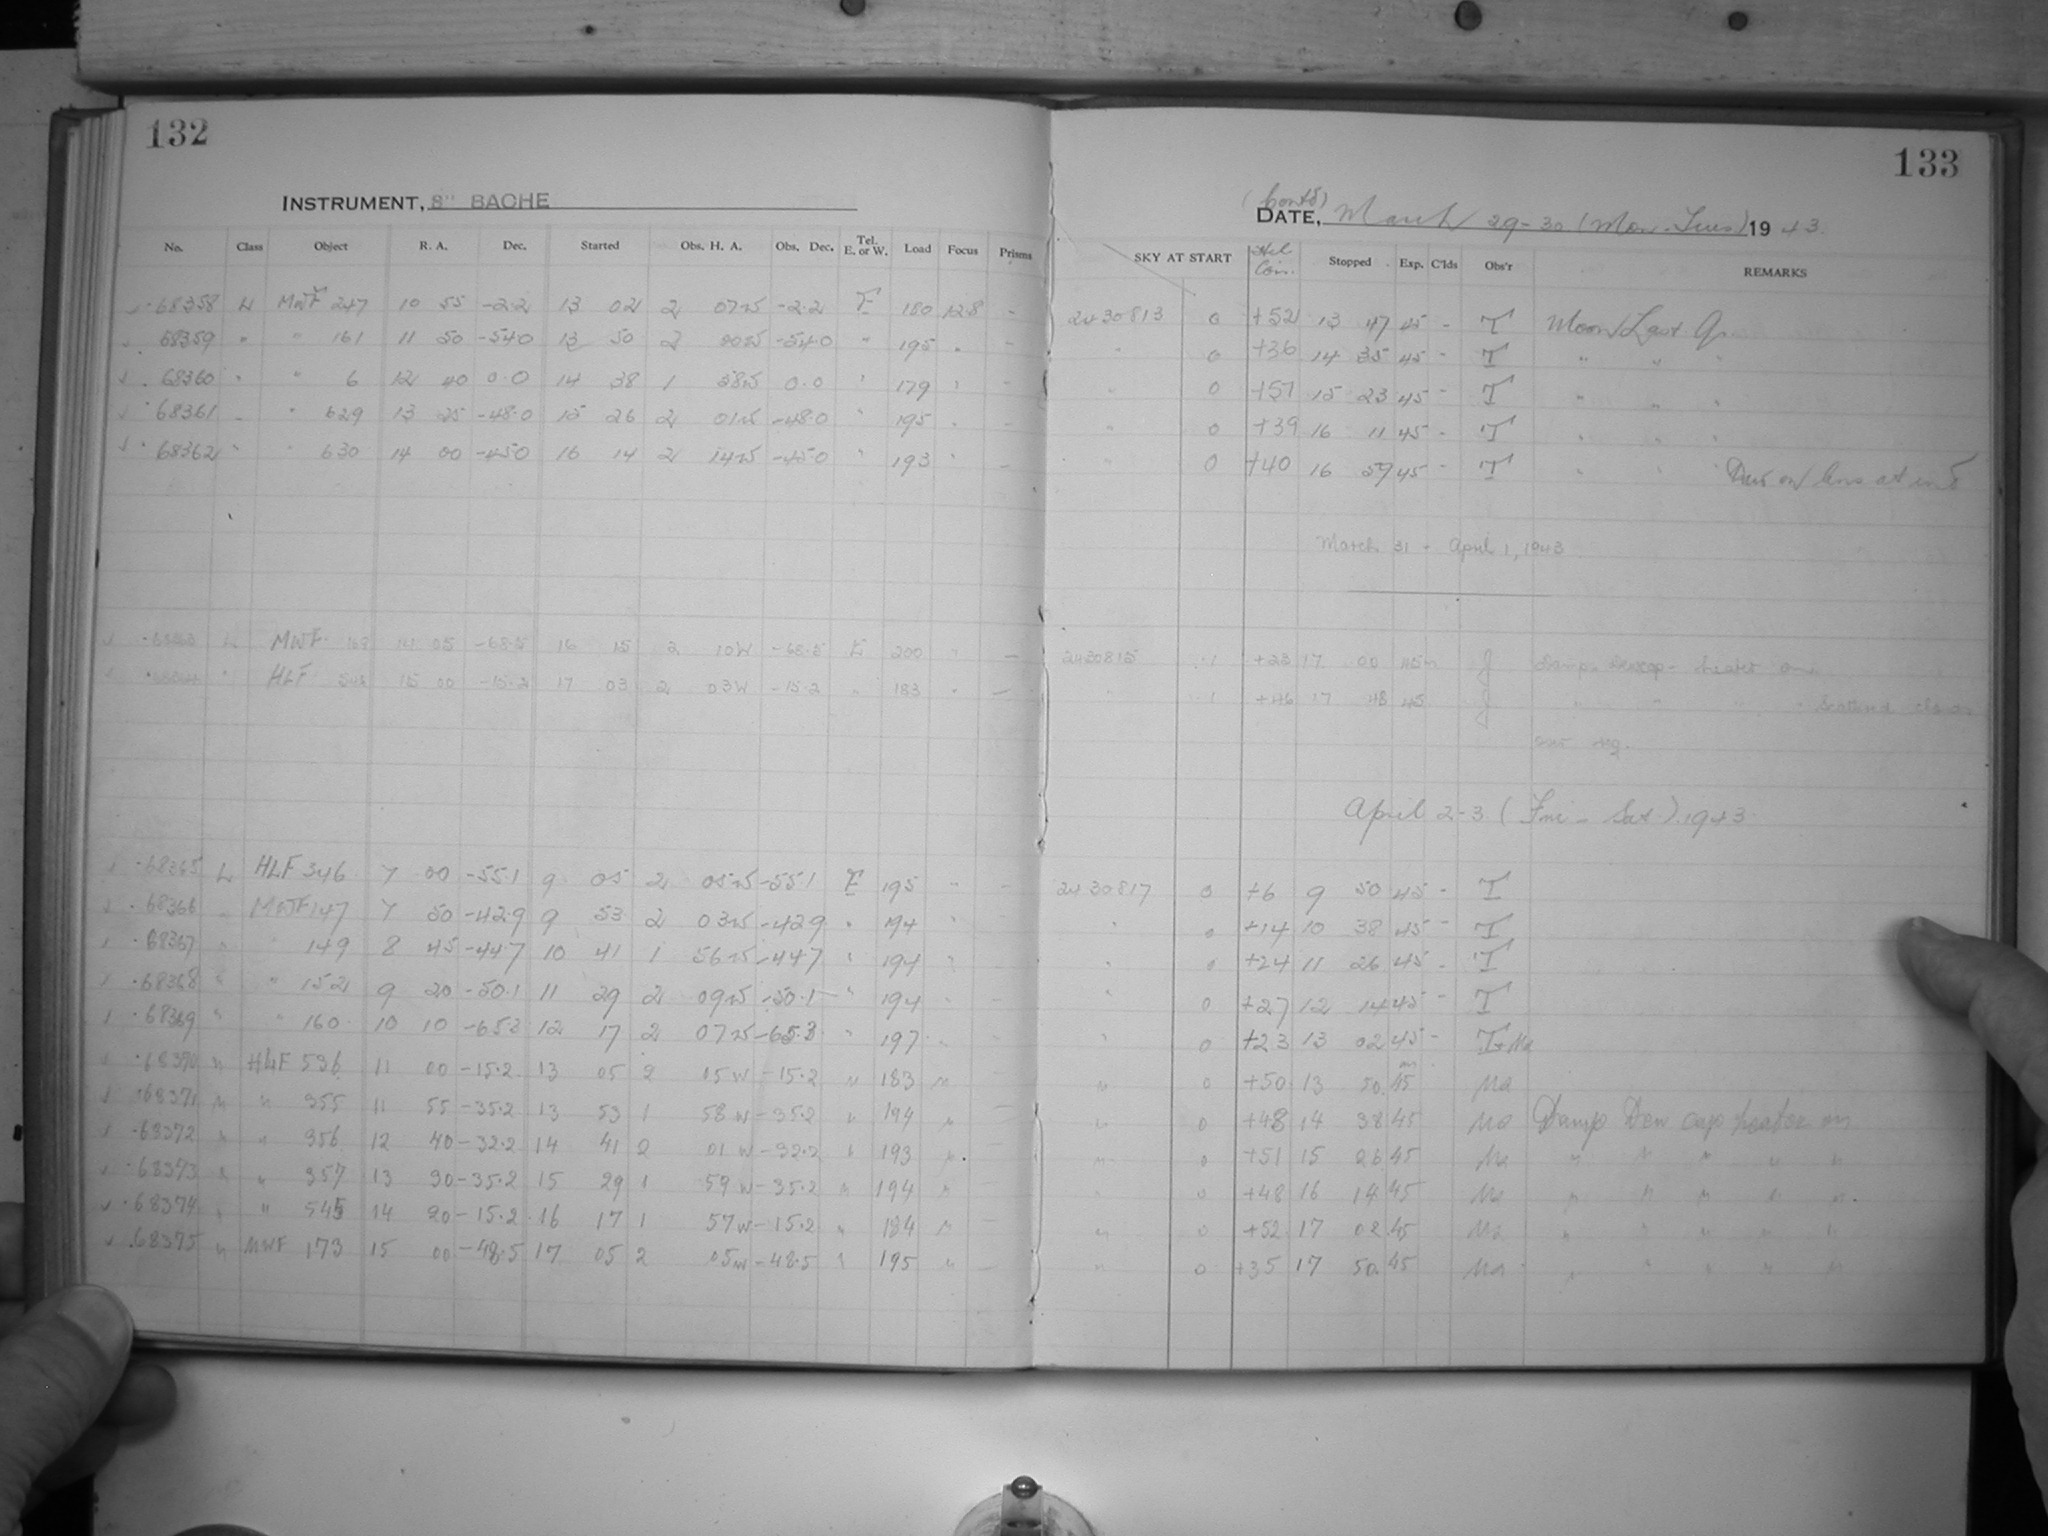 132
INSTRUMENT, 8" BACHE
No. Class Object R. A. Dec. Started Obs. H. A. Obs. Dec. Tel. E. or W. Load Focus Prisms
68358 L MWF 247 10 55 -2.2 13 02 2 07W -2.2 E 180 128 -
68359 " " 161 11 50 -54.0 13 50 2 00W -54.0 " 195 " -
68360 " " 6 12 40 0.0 14 38 1 58W 0.0 " 179 " -
68361 " " 629 13 25 -48.0 15 26 2 01W -48.0 " 195 " -
68362 " " 630 14 00 -45.0 16 14 2 14W -45.0 " 193 " -
MWF 169 05 -68.5 16 15 2 10W -68.5 E 200 " -
HLF 15 00 -15.2 17 03 2 03W -15.2 " 183 " -
68365 L HLF 346 7 00 -55.1 9 05 2 05W -55.1 E 195 " -
68366 " MWF 147 7 50 -42.9 9 53 2 03W -42.9 " 194 " -
68367 " " 149 8 45 -44.7 10 41 1 56W -44.7 " 194 " -
68368 " " 152 9 20 -50.1 11 29 2 09W -50.1 " 194 " -
68369 " " 160 10 10 -65.3 12 17 2 07W -65.3 " 197 " -
68370 " HLF 536 11 00 -15.2 13 05 2 05W -15.2 " 183 " -
68371 " " 355 11 55 -35.2 13 53 1 58W -35.2 " 194 " -
68372 " " 356 12 40 -32.2 14 41 2 01W -32.2 " 193 " -
68373 " " 357 13 30 -35.2 15 29 1 59W -35.2 " 194 " -
68374 " " 545 14 20 -15.2 16 17 1 57W -15.2 " 184 " -
68375 " MWF 173 15 00 -48.5 17 05 2 05W -48.5 " 195 " -
133
(Contd)
DATE, March 29-30 (Mon.-Tues) 1943.
SKY AT START Hel. Corr. Stopped Exp. C'lds Obs'r REMARKS
2430813 0 +52 13 47 45 - T Moon Last Qr.
" 0 +36 14 35 45 - T " " "
" 0 +57 15 23 45 - T " " "
" 0 +39 16 11 45 - T " " "
" 0 +40 16 59 45 - T " " " Dew on lens at end
March 31 - April 1, 1943
2430815 1 +23 17 00 45m J Damp - Dewcap - heater on
" 1 +46 17 48 45 J " " " " Scattered
April 2-3 (Fri - Sat) 1943
2430817 0 +6 9 50 45 - T
" 0 +14 10 38 45 - T
" 0 +24 11 26 45 - T
" 0 +27 12 14 45 - T
" 0 +23 13 02 45 - T+Ma
" 0 +50 13 50 45m Ma
" 0 +48 14 38 45 Ma Damp Dew cap heater on
" 0 +51 15 26 45 Ma " " " " "
" 0 +48 16 14 45 Ma " " " " "
" 0 +52 17 02 45 Ma " " " " "
" 0 +35 17 50 45 Ma " " " " "